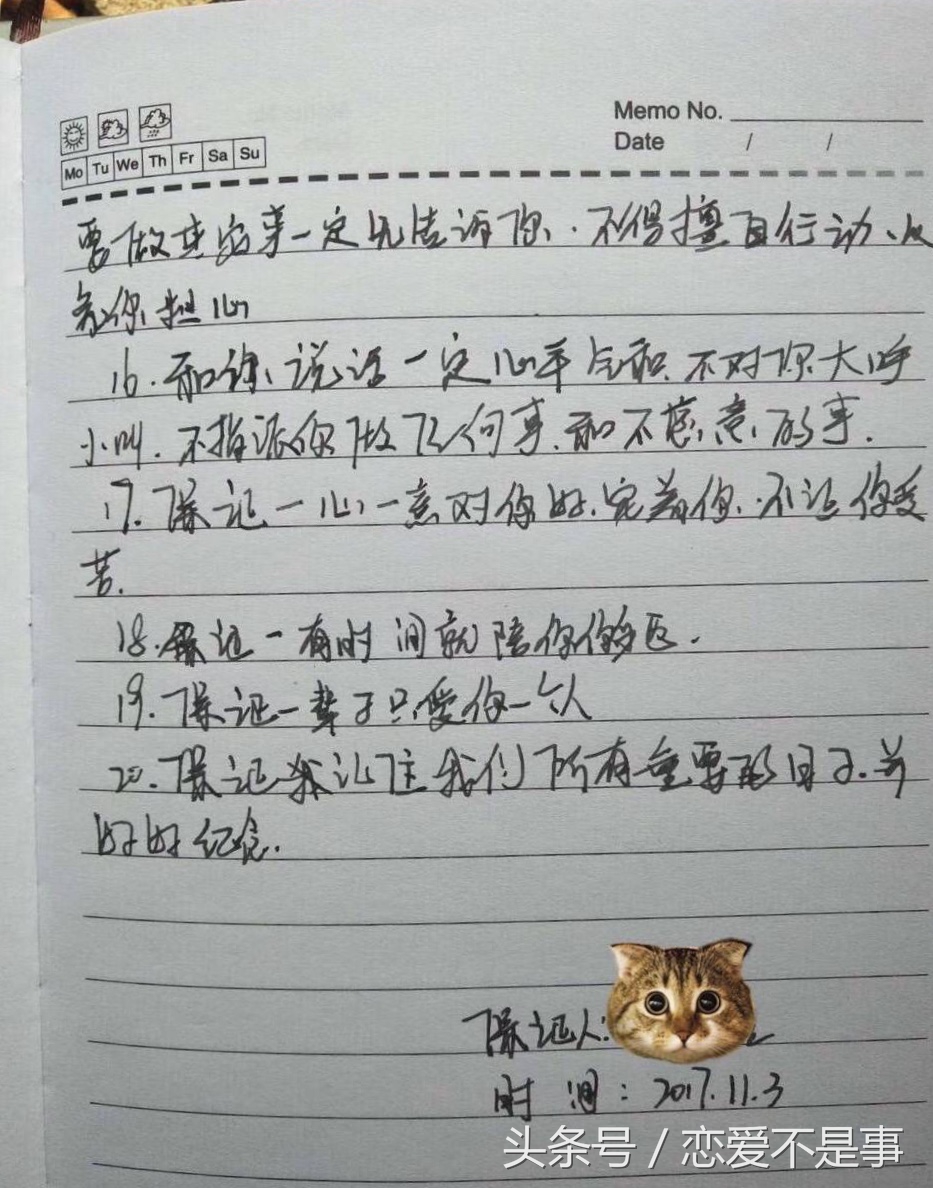 Memo No.
Mo Tu We Th Fr Sa Su
Date / /
要做某事一定先告诉你.不得擅自行动、以
免你担心
16.和你说话一定心平气和.不对你大呼
小叫.不指派你做任何事.和不愿意的事.
17.保证一心一意对你好.宠着你.不让你受
苦.
18.保证一有时间就陪你.
19.保证一辈子只爱你一个人
20.保证我记住我们所有重要的日子.并
好好纪念.
保证人:
时间:2017.11.3
头条号/恋爱不是事